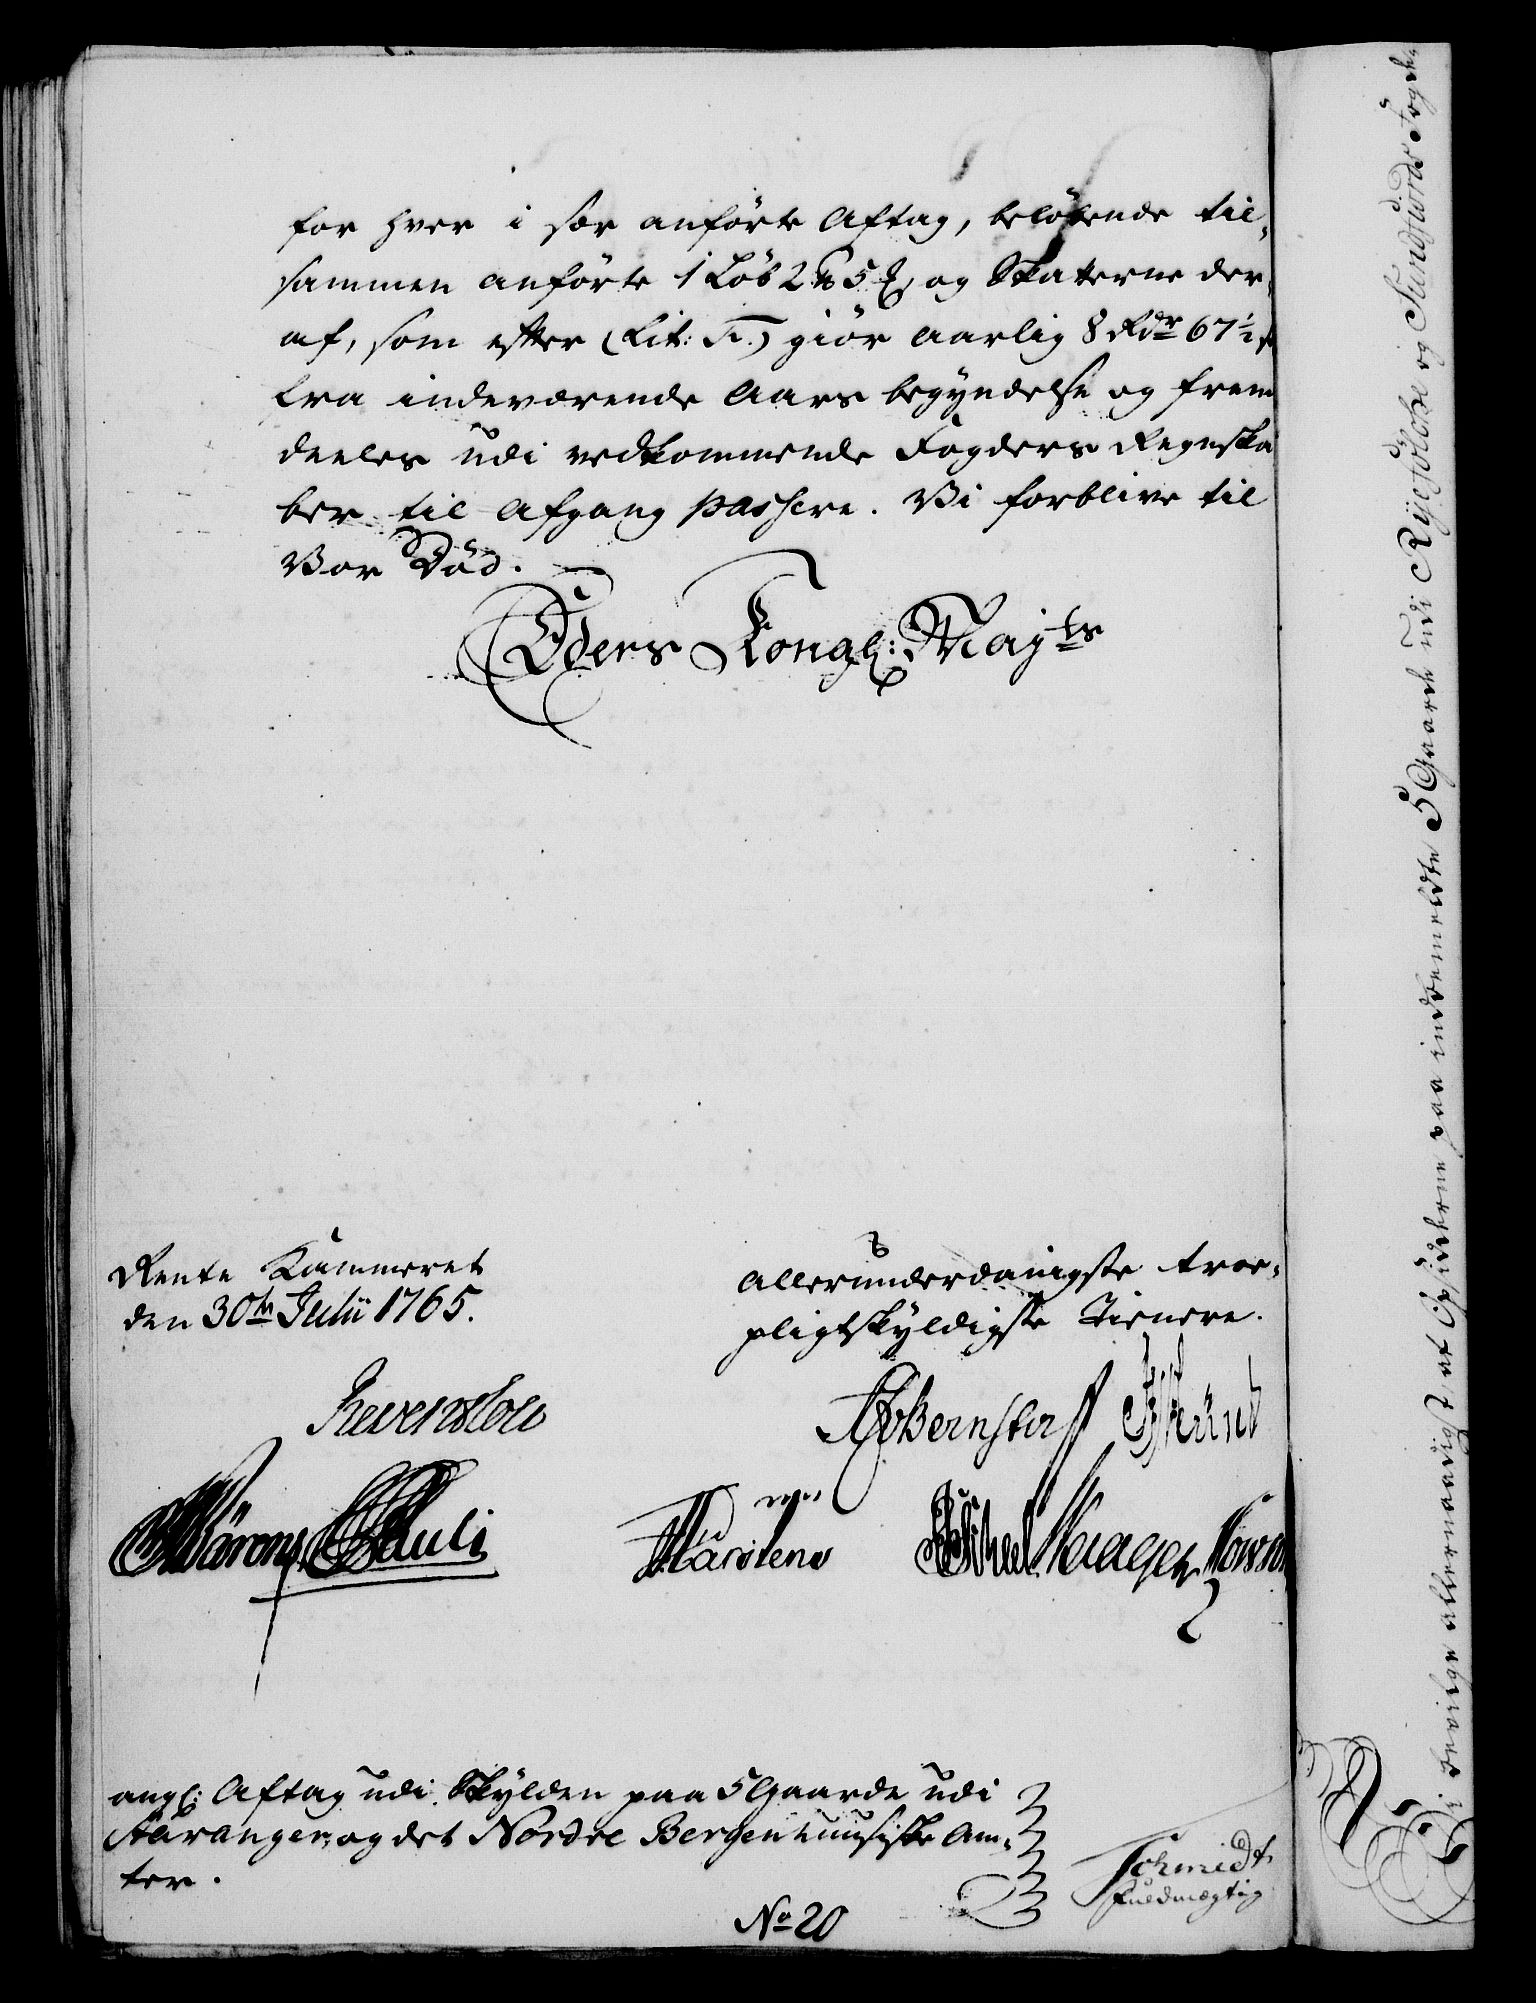 for hver i sær anførte Aftag, beløbende til-
sammen anførte 1 Løb 2 5 og Skatterne der-
af, som efter (Lit: A.) giør aarlig 8 Rdr 67 1/2 s
fra indeværende Aars begyndelse og frem
deeles udi vedkommende Fogders Regnska
ber til Afgang passere. Vi forblive til
Vor Død.
Eders Kongl: Mayts
Rente Kammeret
den 30te Julii 1765.
Allerunderdanigste troe-
pligtskyldigste Tienere.
Reventlow
Bernstorff
Pauli
Karstens
angl: Aftag udi Skylden paa 5 Gaarde udi
Stavanger, og det Nordre Bergenhuusiske Am-
ter.
Schmidt
Fuldmægtig
No 20
Vi bevilge allernaadigst, at Opsidderne paa indbemeldte 5 Gaarde udi Ryefølche og Sundfiords Fogde